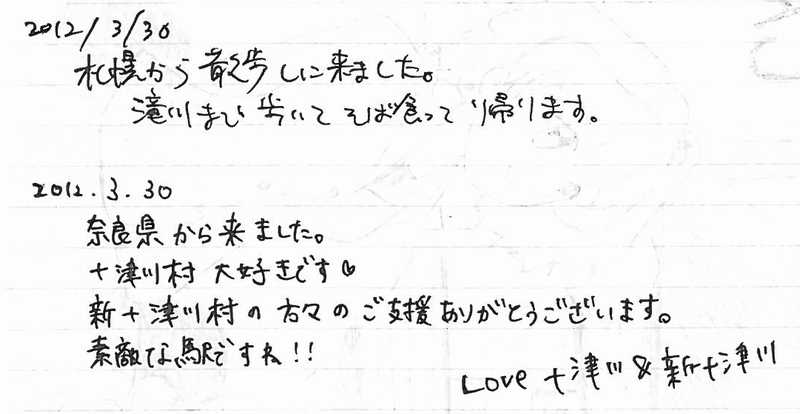 2012/3/30
札幌から散歩しに来ました。
滝川まで歩いてそば食って帰ります。
2012.3.30
奈良県から来ました。
十津川村大好きです♡
新十津川村の方々のご支援ありがとうございます。
素敵な駅ですね!!
Love 十津川&新十津川